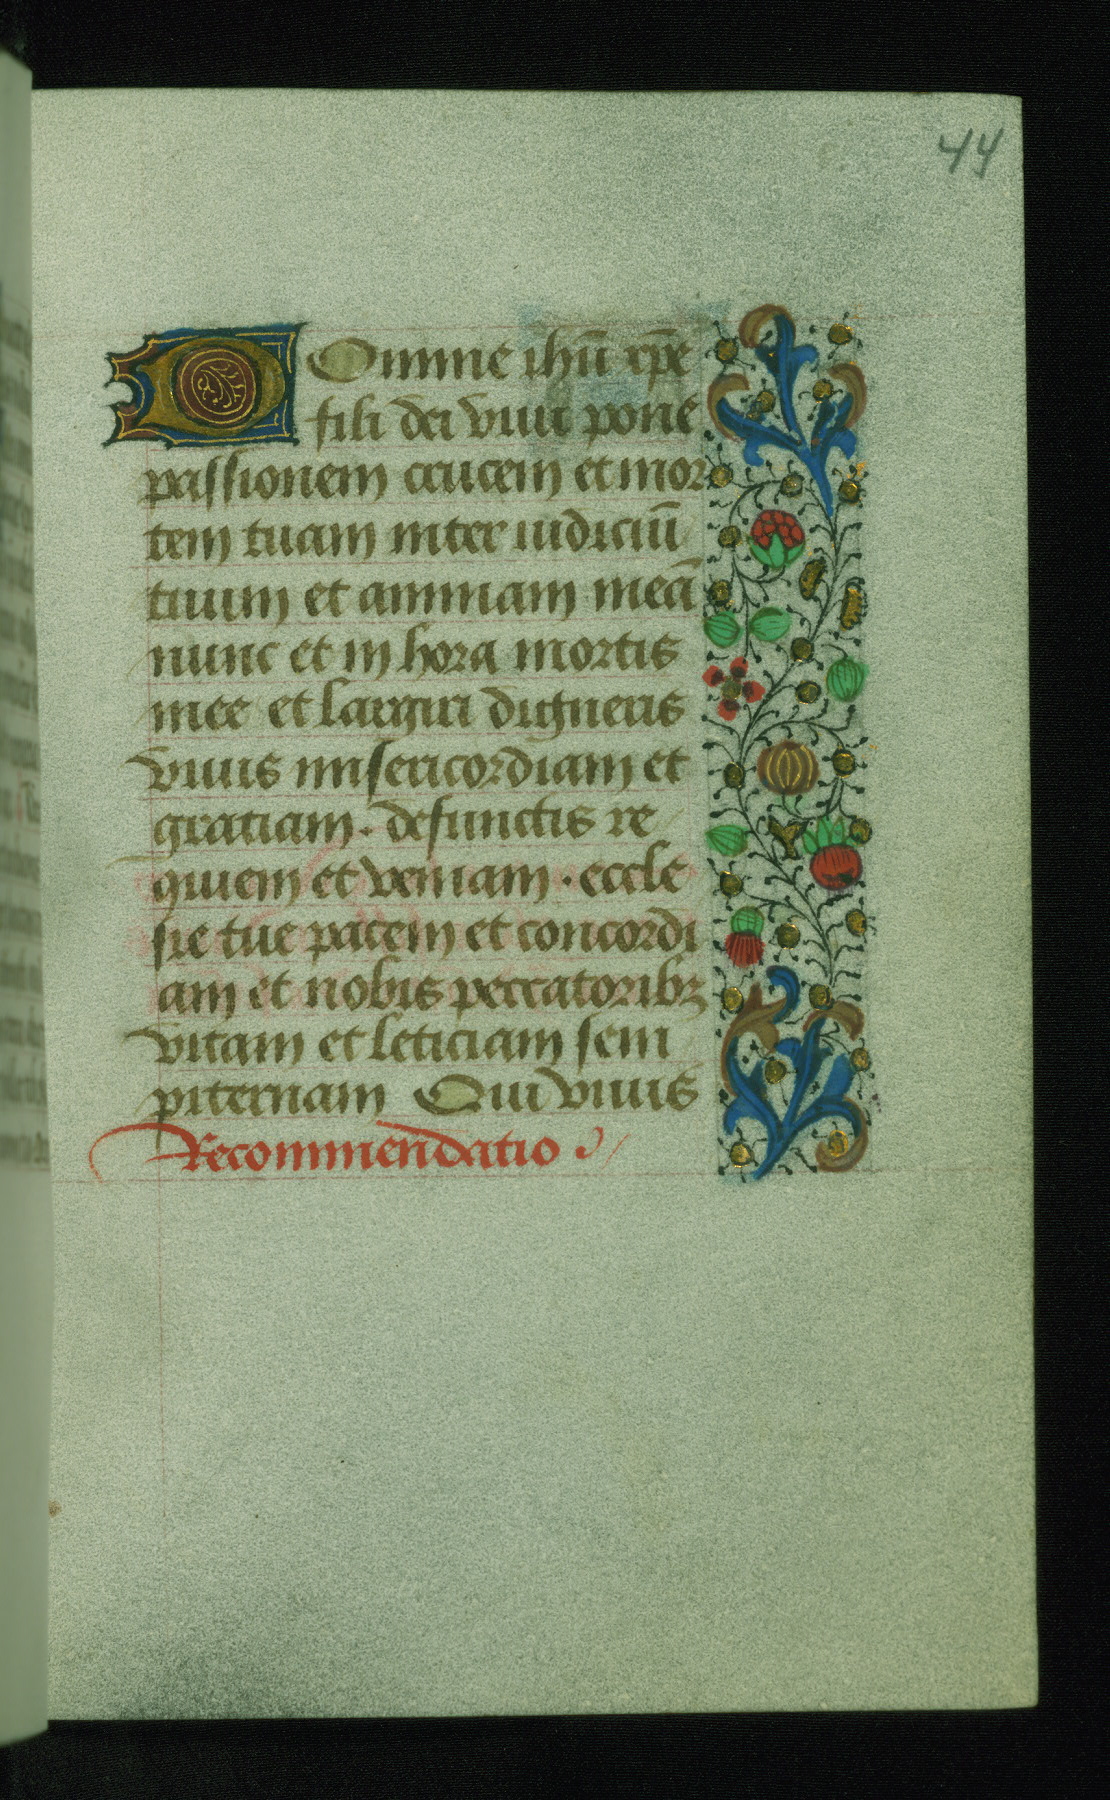 44
Domine ihū xp̄e
fili dei viui pone
passionem crucem et mor
tem tuam inter iudiciū
tuum et animam meā
nunc et in hora mortis
mee et largiri digneris
viuis misericordiam et
gratiam. defunctis re
quiem et veniam. eccle
sie tue pacem et concordi
am et nobis peccatoribꝫ
vitam et leticiam sem
piternam Qui viuis
Recommendatio